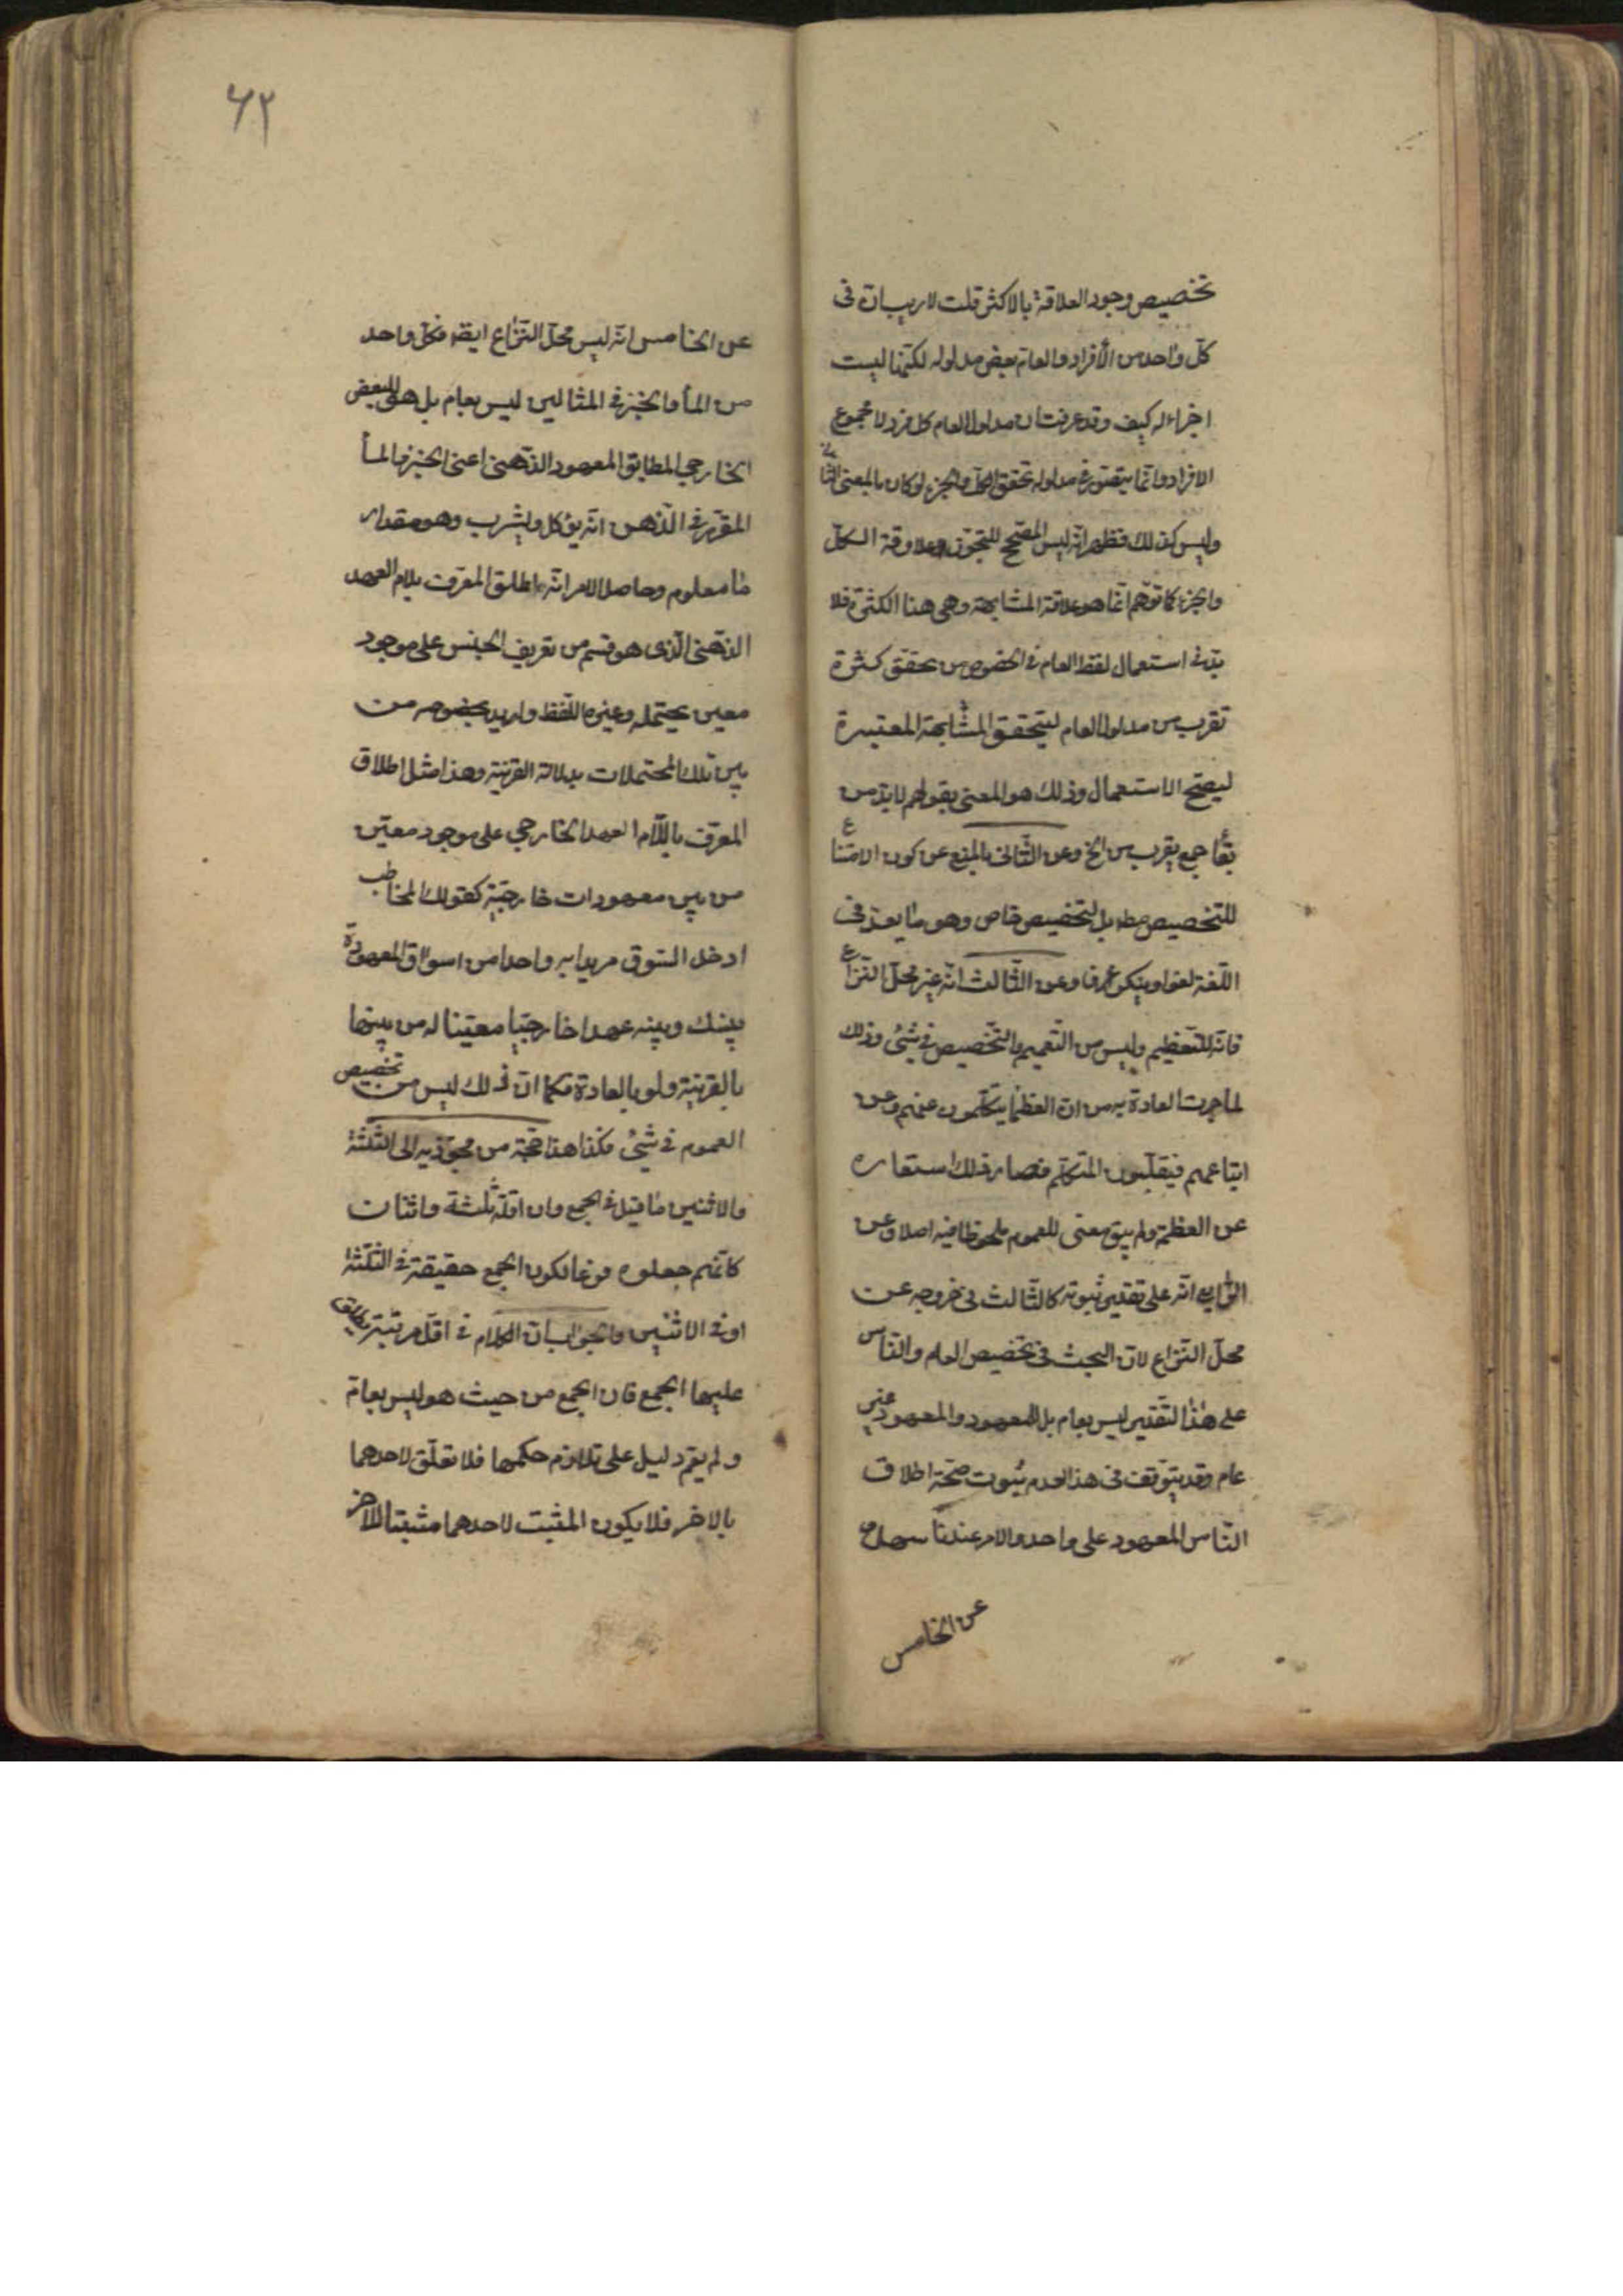 تخصيص وجود العلاقة بالاكثر قلت لا ريب ان فى
كل واحد من الأفراد والعام بعض مدلوله لكنها ليست
اجزاء له كيف وقد عرفت ان مدلول العام كل فرد لا مجموع
الافراد وانما يتصور فى مدلوله تحقق الكل والجزء لو كان بالمعنى الثانى
وليس كذلك فظهر انه ليس المصحح للتجوز علاقة الكل
والجزء كما توهم انما هو علاقة المشابهة وهى هنا الكثرة فلا
بد فى استعمال لفظ العام فى الخصوص من تحقق كثرة
تقرب من مدلول العام ليتحقق المشابهة المعتبرة
ليصح الاستعمال وذلك هو المعنى بقولهم لابد من
بقاء جمع يقرب من الخ وعن الثانى بالمنع عن كون الامتناع
للتخصيص مط بل لتخصيص خاص وهو ما يعد فى
اللغة لغوا وينكر عرفا وعن الثالث انه غير محل النزاع
فانه للتعظيم وليس من التعميم والتخصيص فى شئ وذلك
لما جرت العادة به من ان العظماء يتكلمون عنهم وعن
اتباعهم فيغلبون المتكلم فصار ذلك استعاره
عن العظمة ولم يبق معنى للعموم ملحوظا فيه اصلا وعن
الرابع انه على تقدير ثبوته كالثالث فى خروجه عن
محل النزاع لان البحث فى تخصيص العام والناس
على هذا التقدير ليس بعام بل للمعهود والمعهود غير
عام وقد يتوقف فى هذا لعدم ثبوت صحة اطلاق
الناس المعهود على واحد والامر عندنا سهل و
عن الخامس
٦٢
عن الخامس انه ليس محل النزاع ايضا فكل واحد
من الماء والخبز فى المثالين ليس بعام بل هو للبعض
الخارجى المطابق المعهود الذهنى اعنى الخبز والماء
المقرر فى الذهن انه يؤكل ويشرب وهو مقدار
ما معلوم وحاصل الامر انه اطلق المعرف بلام العهد
الذهنى الذى هو قسم من تعريف الجنس على موجود
معين يحتمله وغيره اللفظ واريد بخصوصه من
بين تلك المحتملات بدلالة القرينة وهذا مثل اطلاق
المعرف باللام العهد الخارجى على موجود معين
من بين معهودات خارجية كقولك لمخاطب
ادخل السوق مريدا به واحدا من اسواق المعهودة
بينك وبينه عهدا خارجيا معينا له من بينها
بالقرينة ولو بالعادة فكما ان ذلك ليس من تخصيص
العموم فى شئ فكذا هذا حجة من مجوزيه الى الثلثة
والاثنين ما قيل فى الجمع وان اقله ثلثة واثنان
كانهم جعلوه فرعا لكون الجمع حقيقة فى الثلثة
او فى الاثنين والجواب ان الكلام فى اقل مرتبة يطلق
عليها الجمع فان الجمع من حيث هو ليس بعام
ولم يقم دليل على تلازم حكمها فلا تعلق لاحدهما
بالاخر فلا يكون المثبت لاحدهما مثبتا للاخر